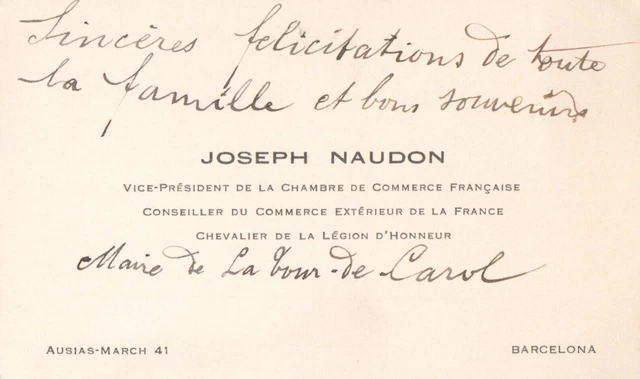 Sincères félicitations de toute
la famille et bons souvenirs
JOSEPH NAUDON
VICE-PRÉSIDENT DE LA CHAMBRE DE COMMERCE FRANÇAISE
CONSEILLER DU COMMERCE EXTÉRIEUR DE LA FRANCE
CHEVALIER DE LA LÉGION D'HONNEUR
Maire de La Tour-de-Carol
AUSIAS-MARCH 41
BARCELONA